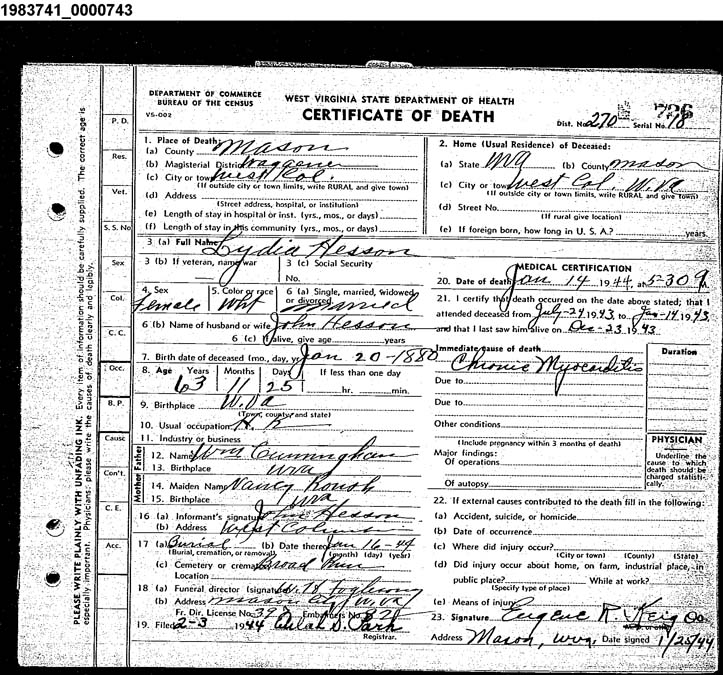 1983741_0000743
DEPARTMENT OF COMMERCE
BUREAU OF THE CENSUS
VS-002
WEST VIRGINIA STATE DEPARTMENT OF HEALTH
CERTIFICATE OF DEATH
Dist. No. 270 Serial No. 18
1. Place of Death:
(a) County Mason
(b) Magisterial District Waggener
(c) City or town West Col.
(If outside city or town limits, write RURAL and give town)
(d) Address
(Street address, hospital, or institution)
(e) Length of stay in hospital or inst. (yrs., mos., or days)
(f) Length of stay in this community (yrs., mos., or days)
2. Home (Usual Residence) of Deceased:
(a) State WVa (b) County Mason
(c) City or town West Col. W. Va
(If outside city or town limits, write RURAL and give town)
(d) Street No.
(If rural give location)
(e) If foreign born, how long in U. S. A.? years.
3 (a) Full Name Lydia Hesson
3 (b) If veteran, name war
3 (c) Social Security
No.
4. Sex Female
5. Color or race Wht
6 (a) Single, married, widowed,
or divorced Married
6 (b) Name of husband or wife John Hesson
6 (c) If alive, give age years
7. Birth date of deceased (mo., day, yr.) Jan 20-1880
8. Age Years Months Days If less than one day
63 11 25 hr. min.
9. Birthplace W. Va
(Town, county and state)
10. Usual occupation
11. Industry or business
Father
12. Name Wm Cunningham
13. Birthplace WVa
Mother
14. Maiden Name Nancy Roush
15. Birthplace WVa
16 (a) Informant's signature John Hesson
(b) Address West Columbia
17 (a) Burial (b) Date thereof Jan 16-44
(Burial, cremation, or removal) (month) (day) (year)
(c) Cemetery or crematory Broad Run
Location
18 (a) Funeral director (signature)
(b) Address Mason City W. Va
Fr. Dir. License No. Embalmers No.
19. Filed 2-3 1944
Registrar.
MEDICAL CERTIFICATION
20. Date of death Jan 14 1944, at 5-30
21. I certify that death occurred on the date above stated; that I
attended deceased from July-24 1943 to Jan-14 1943
and that I last saw him alive on Dec-23 1943
Immediate cause of death Duration
Chronic Myocarditis
Due to
Due to
Other conditions
(Include pregnancy within 3 months of death)
Major findings:
Of operations
Of autopsy
PHYSICIAN
Underline the
cause to which
death should be
charged statisti-
cally.
22. If external causes contributed to the death fill in the following:
(a) Accident, suicide, or homicide
(b) Date of occurrence
(c) Where did injury occur?
(City or town) (County) (State)
(d) Did injury occur about home, on farm, industrial place, in
public place? While at work?
(Specify type of place)
(e) Means of injury
23. Signature Eugene R.
Address Mason, W.Va. Date signed 1/25/44
P. D.
Res.
Vet.
S. S. No
Sex
Col.
C. C.
Occ.
B. P.
Cause
Con't.
C. E.
Acc.
PLEASE WRITE PLAINLY WITH UNFADING INK. Every item of information should be carefully supplied. The correct age is
especially important. Physicians: please write the causes of death clearly and legibly.